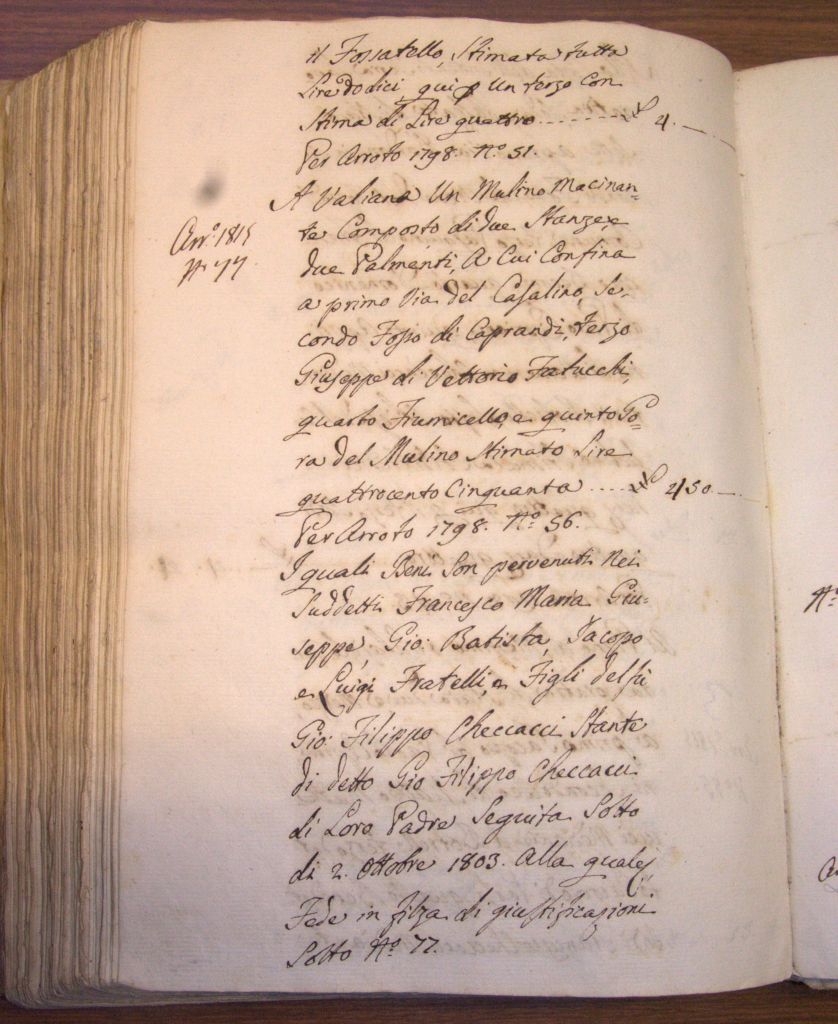 il Fossatello, Stimata tutta
Lire dodici, qui p un terzo con
Stima di Lire quattro 4.
Per Arroto 1798. N.º 51.
A Valiana Un Mulino Macinan-
Arr.º 1815
te Composto di due Stanze, e
N. 77
due Palmenti, A Cui Confina
a primo Via del Casalino, Se-
condo Fosso di Caprandi, terzo
Giuseppe di Vettorio Fatucchi,
quarto Fiumicello, e quinto Go-
ra del Mulino Stimato Lire
quattrocento Cinquanta 450
Per Arroto 1798. N.º 56.
I quali Beni son pervenuti nei
Suddetti Francesco Maria Giu-
seppe Gio: Batista, Jacopo
e Luigi Fratelli, e Figli del fù
Gio: Filippo Checcacci Stante
di detto Gio Filippo Checcacci
di Loro Padre Seguita Sotto
di 2. Ottobre 1803. Alla quale
Fede in filza di giustificazioni
Sotto N.º 77.
N.º